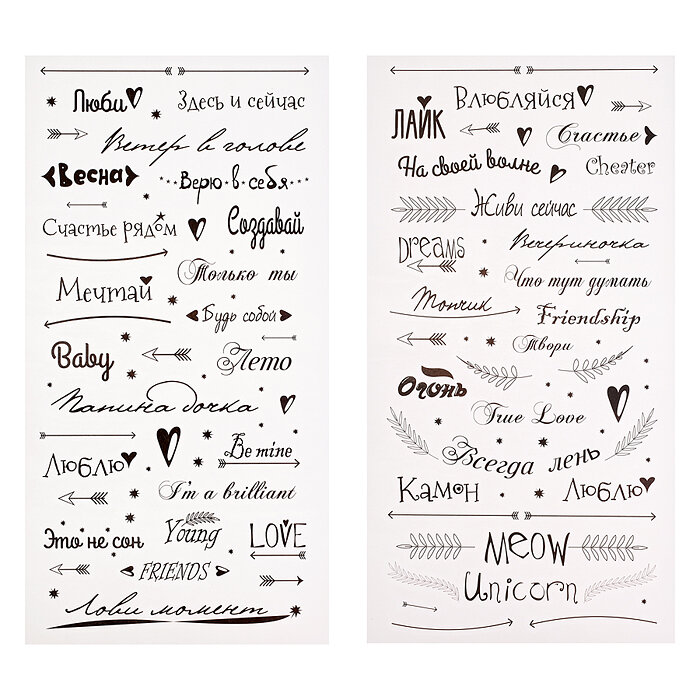 Люби
Здесь и сейчас
Ветер в голове
Весна
Верю в себя
Счастье рядом
Создавай
Только ты
Мечтай
Будь собой
Baby
Лето
Папина дочка
Be mine
Люблю
I'm a brilliant
Это не сон
Young
LOVE
FRIENDS
Лови момент
Влюбляйся
ЛАЙК
Счастье
На своей волне
Cheater
Живи сейчас
Dreams
Вечериночка
Что тут думать
Тончик
Friendship
Твори
Огонь
True Love
Всегда лень
Камон
Люблю
Meow
Unicorn